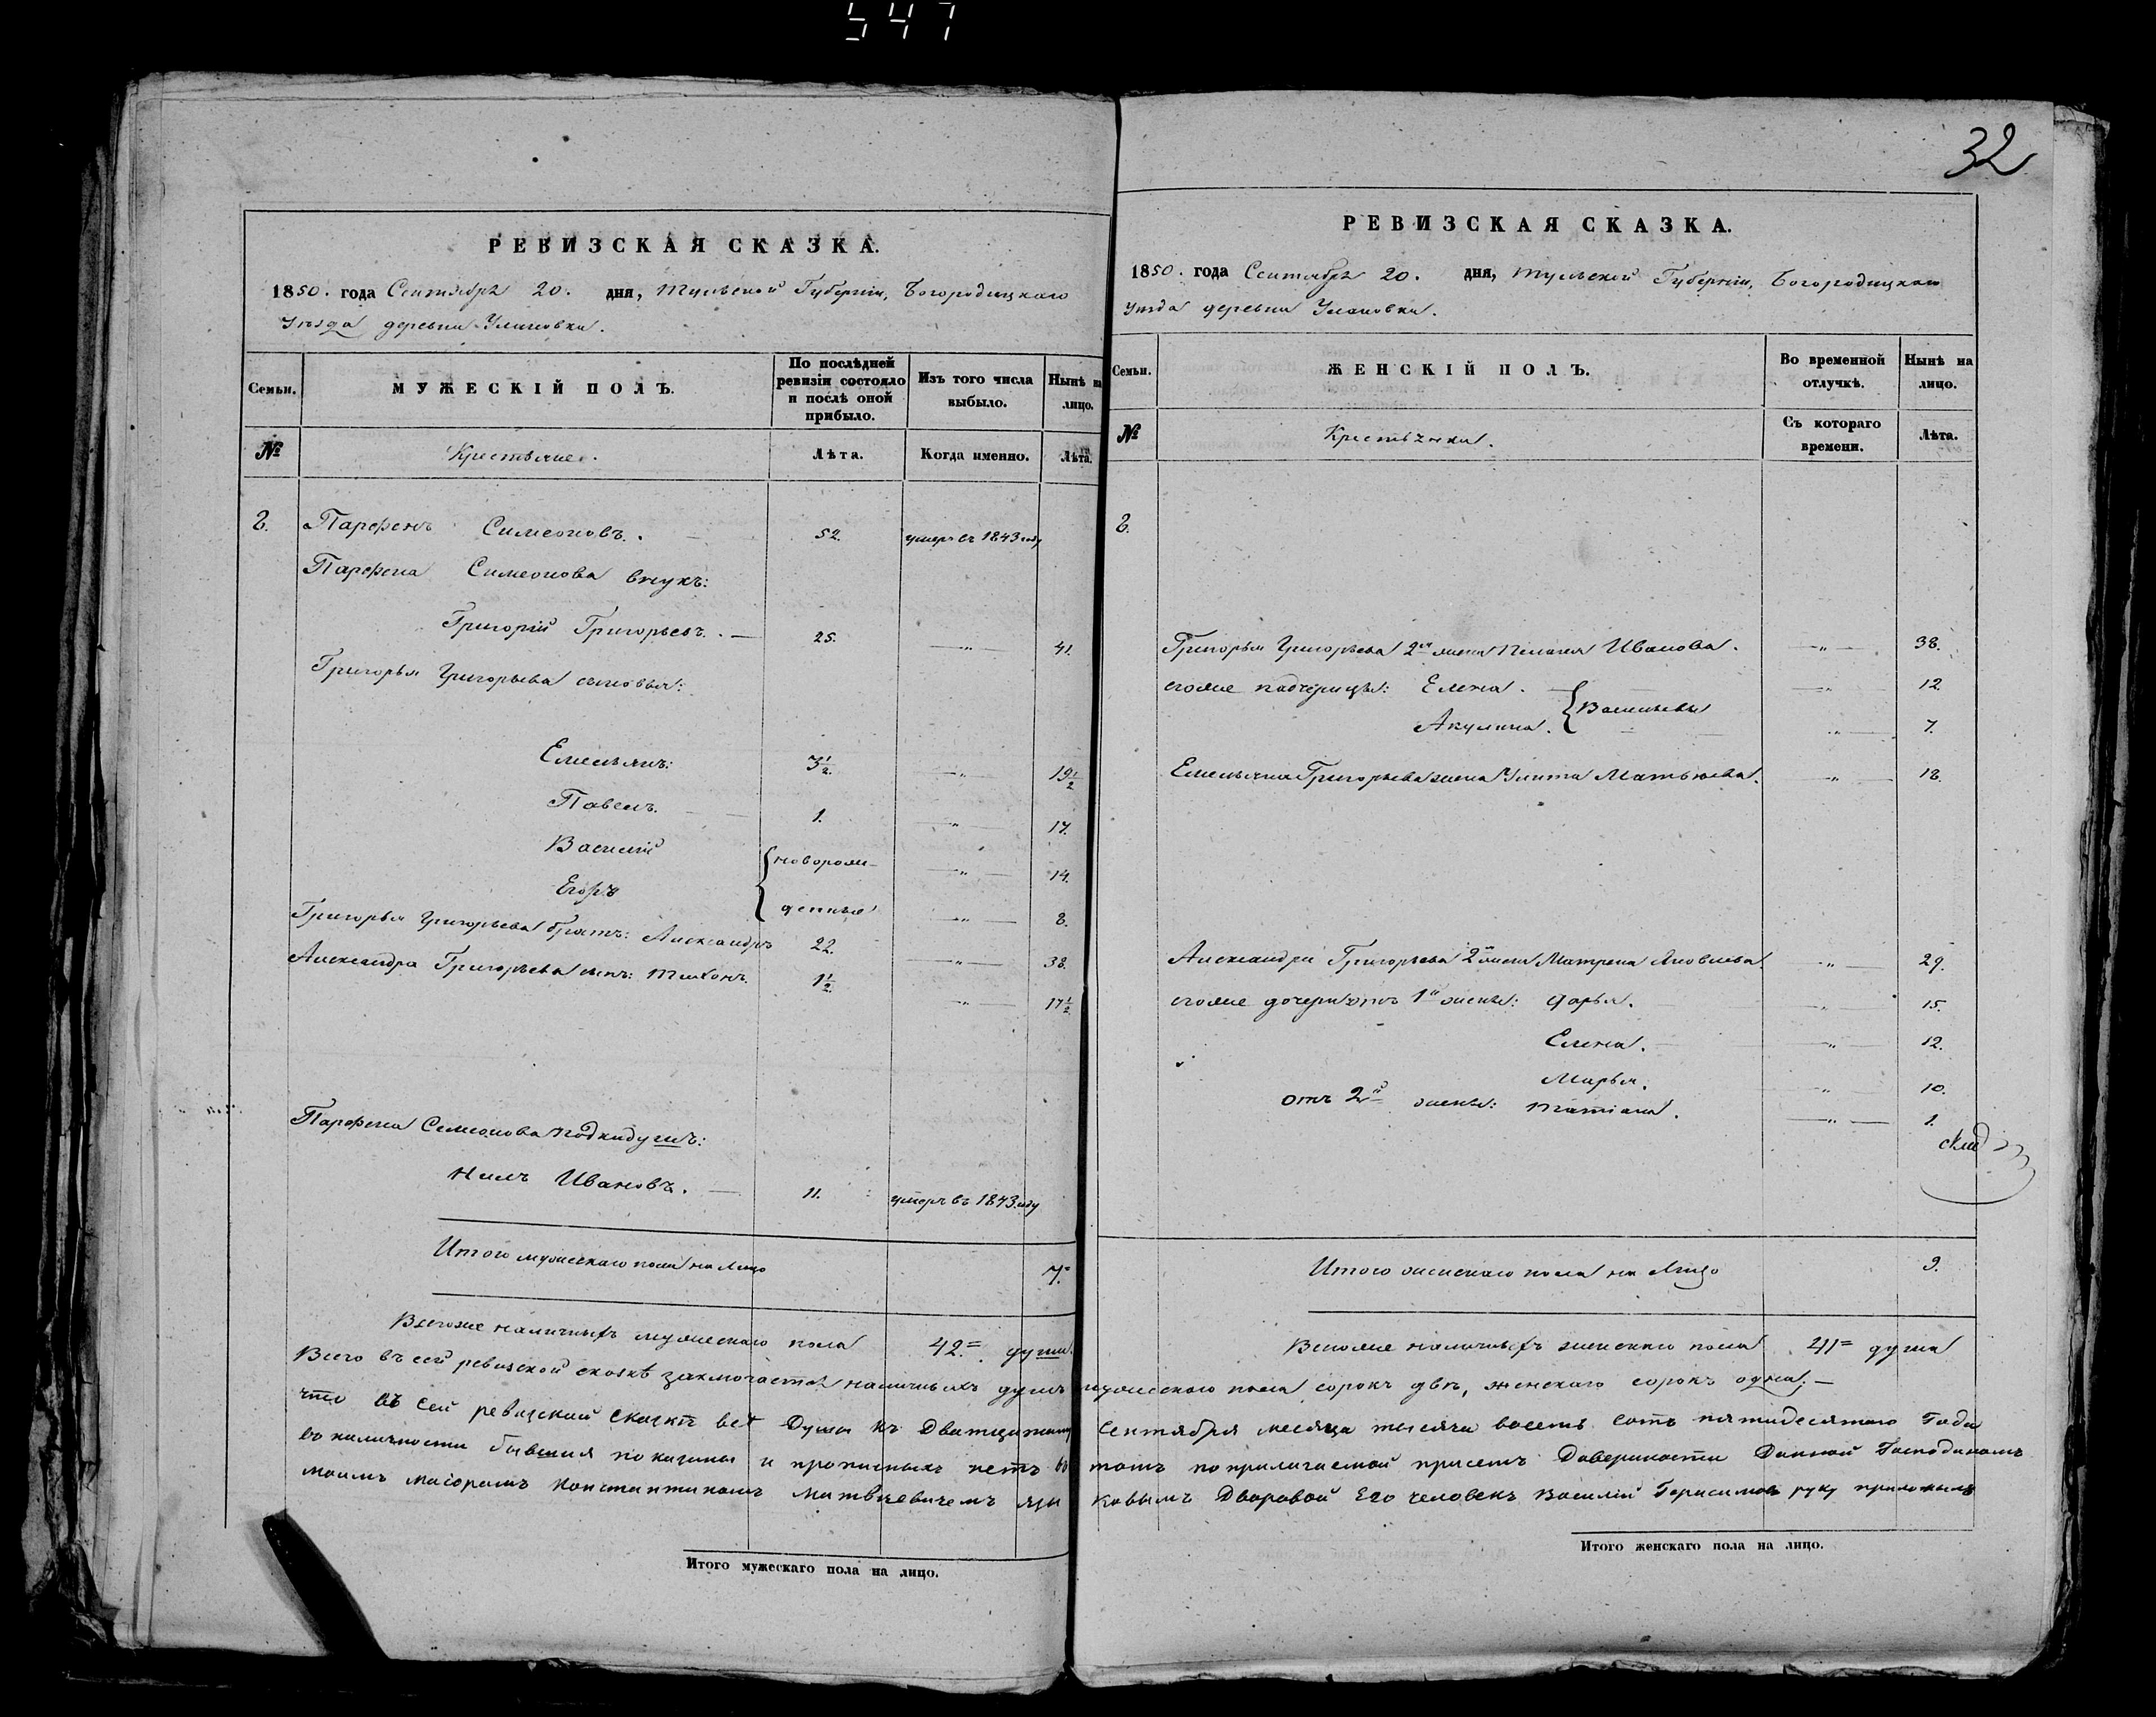 547
РЕВИЗСКАЯ СКАЗКА.
1850. года Сентября 20. дня, Тульской Губерніи, Богородицкаго
Уѣзда деревни Улановки.
Семьи.
МУЖЕСКІЙ ПОЛЪ.
По послѣдней ревизіи состояло и послѣ оной прибыло.
Изъ того числа выбыло.
Нынѣ на лицо.
№
Крестьяне.
Лѣта.
Когда именно.
Лѣта.
8. Парфенъ Симеоновъ. 52. умеръ въ 1843 году
Парфена Симеонова внукъ:
Григорій Григорьевъ. 25. — „ — 41.
Григорья Григорьева сыновья:
Емельянъ: 3½. — „ — 19½
Павелъ. 1. — „ — 17.
Василій { новорож- — „ — 14.
Егоръ денные — „ — 8.
Григорья Григорьева братъ: Александръ 22. — „ — 38.
Александра Григорьева сынъ: Тихонъ. 1½. — „ — 17½
Парфена Семеонова подкидушъ:
Нилъ Ивановъ. 11. умеръ въ 1843 году
Итого мужескаго пола на лицо 7.
Всегоже наличныхъ мужескаго пола 42. души.
Итого мужескаго пола на лицо.
32
РЕВИЗСКАЯ СКАЗКА.
1850. года Сентября 20. дня, Тульской Губерніи, Богородицкаго
Уезда деревни Улановки.
Семьи.
ЖЕНСКІЙ ПОЛЪ.
Во временной отлучкѣ.
Нынѣ на лицо.
№
Крестьянки.
Съ котораго времени.
Лѣта.
8.
Григорья Григорьева 2ая жена Пелагея Иванова. — „ — 38.
егоже падчерицы: Елена. — „ — 12.
Акулина. } Васильевы — „ — 7.
Емельяна Григорьева жена Улита Матвѣева. — „ — 18.
Александра Григорьева 2я жена Матрена Яковлева. — „ — 29.
егоже дочери отъ 1й жены: Дарья. — „ — 15.
Елена. — „ — 12.
Марья. — „ — 10.
отъ 2й жены: Татіана. — „ — 1.
Итого женскаго пола на лицо 9.
Всегоже наличныхъ женскаго пола 41 душа
Всего въ сей ревизской сказкѣ заключается наличныхъ душъ мужескаго пола сорокъ двѣ, женскаго сорокъ одна; —
что въ сей ревизской сказкѣ всѣ Души къ Дватцатому Сентября месяца тысяча восемь сотъ пятидесятаго Года
въ наличности бывшия показаны и прописныхъ нетъ въ томъ поприлагаемой присемъ Доверинности Данной Господиномъ
моимъ маіоромъ Константиномъ Матвѣевичемъ Язы ковымъ Дворовой Его человекъ Василій Герасимовъ руку приложилъ
Итого женскаго пола на лицо.